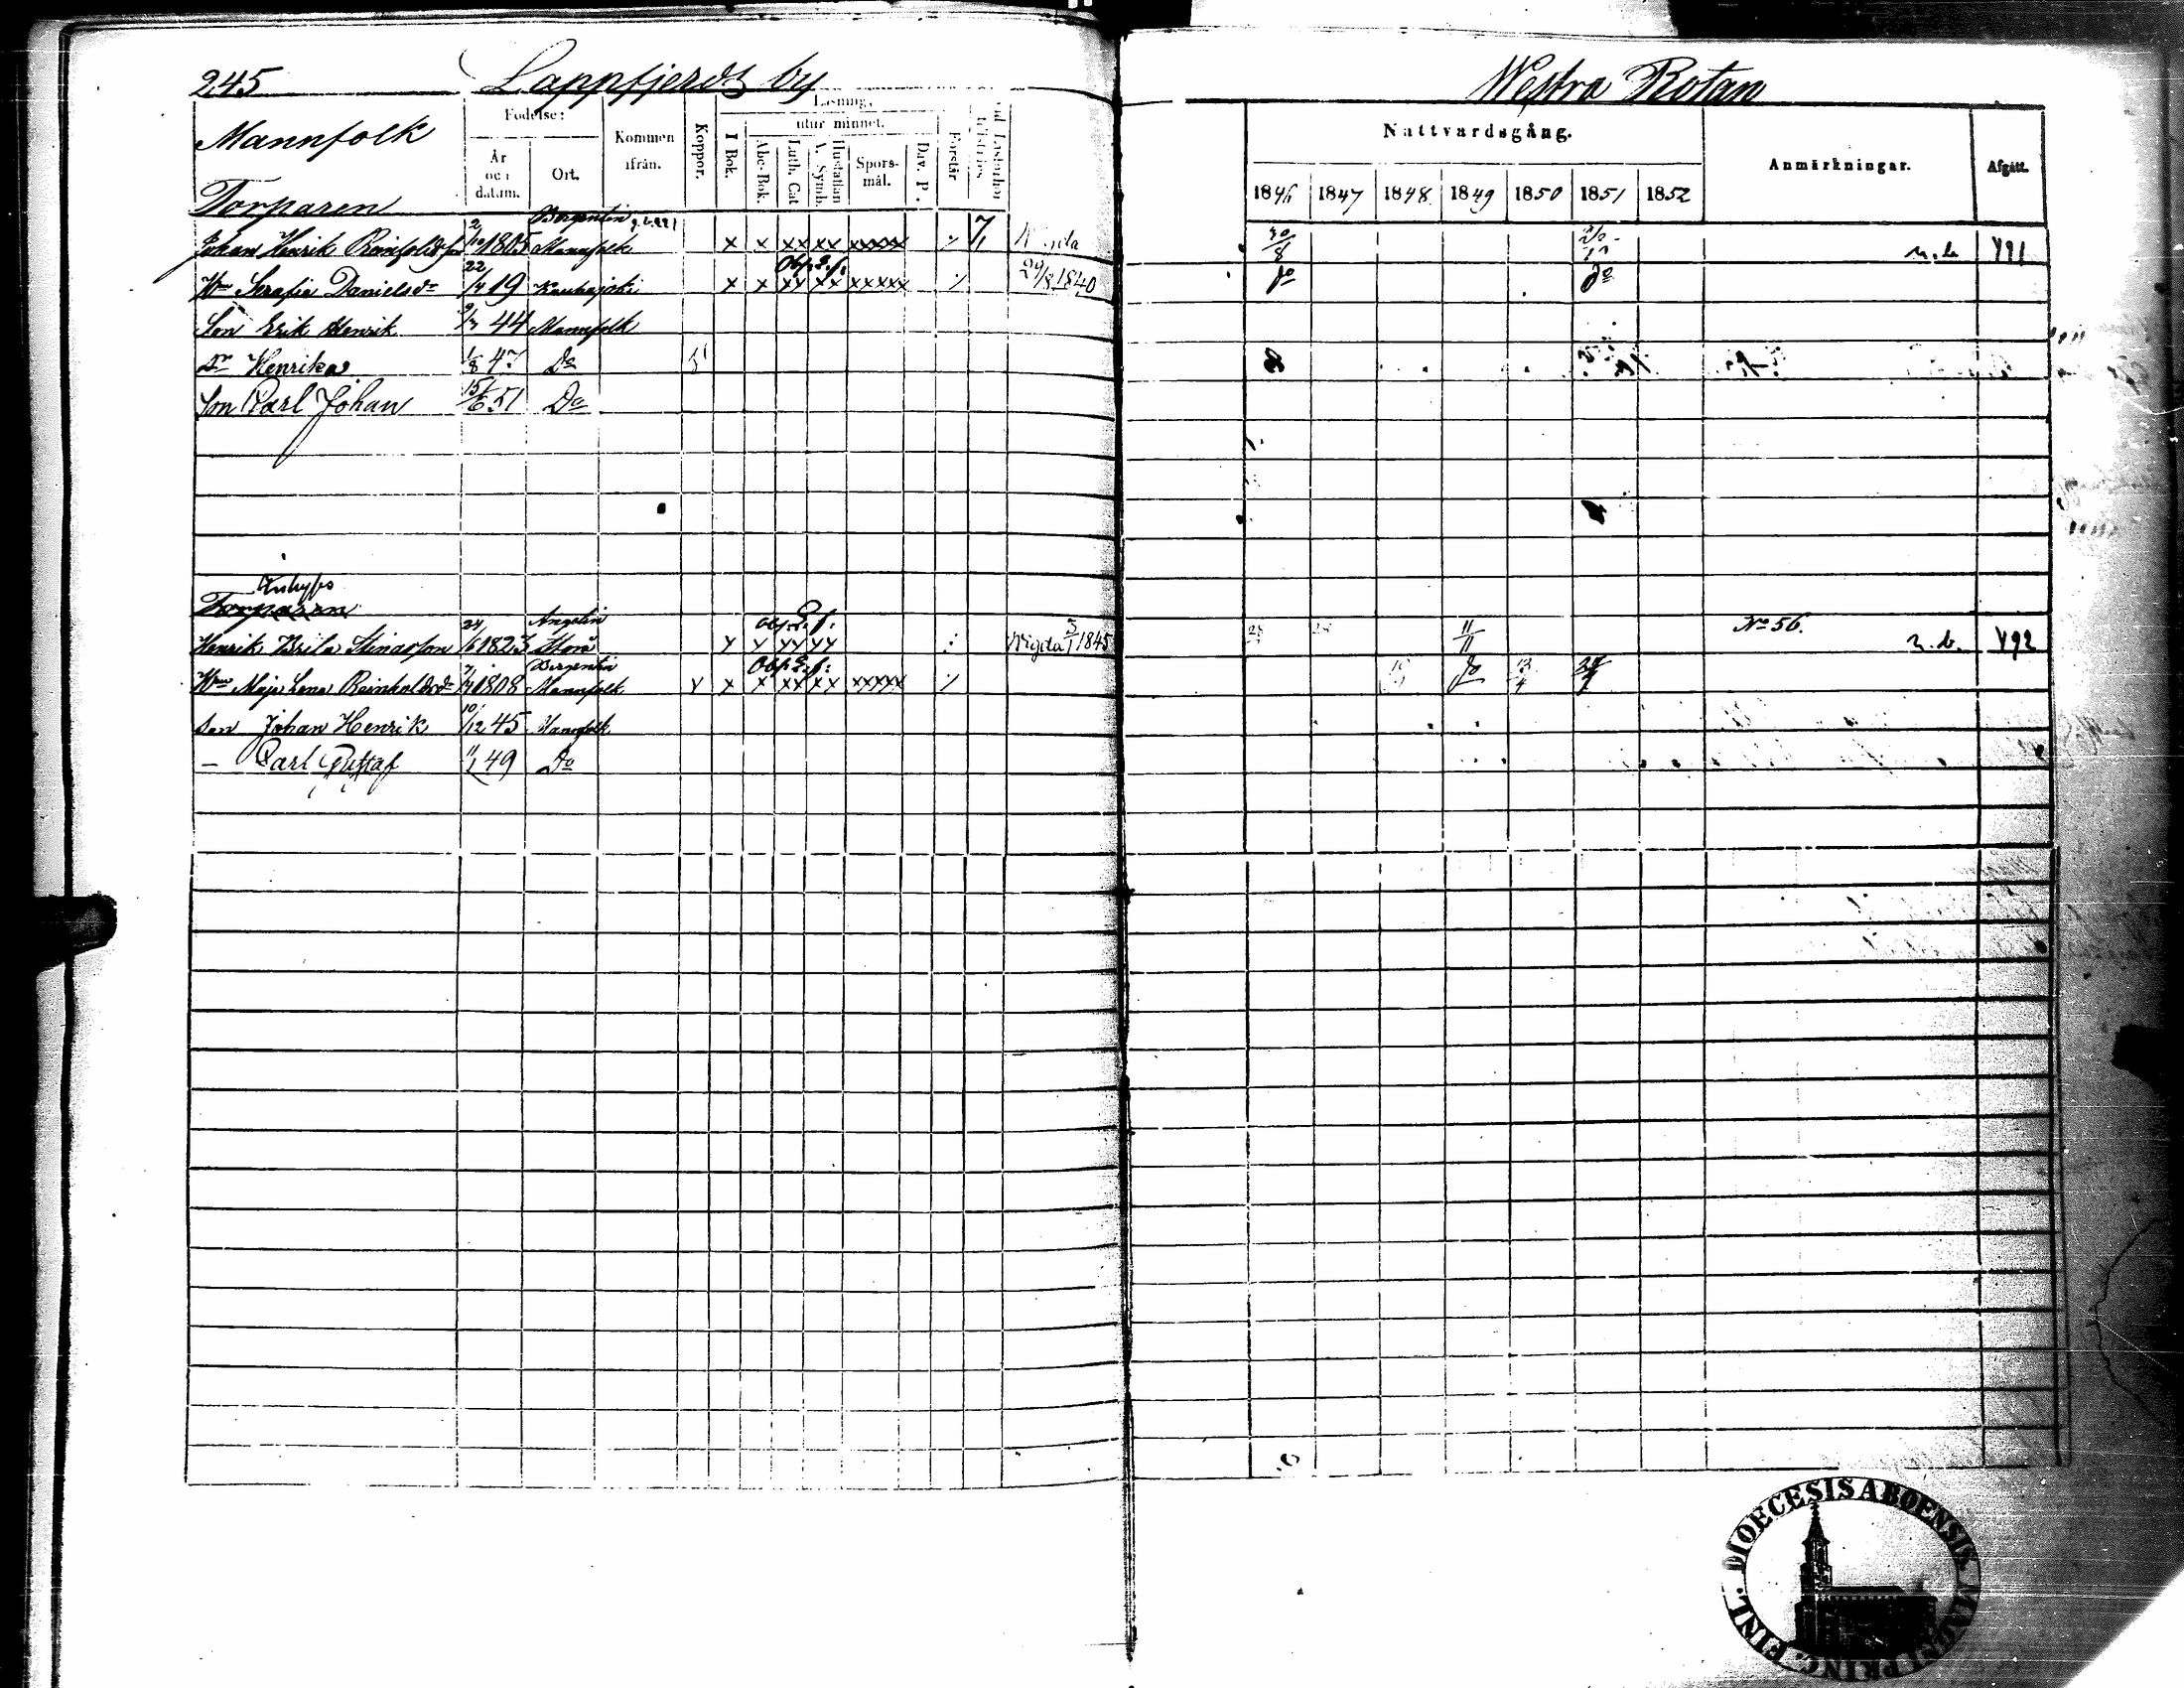 245 Lappfjerds by Westra Rotan
Mannfolk
Födelse:
År och datum.
Ort.
Kommen ifrån.
Koppor.
Läsning,
I Bok.
utur minnet.
Abc-Bok.
Luth. Cat.
Hustaflan A. Symb.
Spors-mål.
Dav. P.
Förstår
Nattvardsgång.
1846 1847 1848 1849 1850 1851 1852
Anmärkningar.
Afgått.
Torparen
Bergentin
Johan Henrik Reinholdsson 2/10 1805 Mannfolk x x xx xx xxxxx 30/8 n.b. 491
Obs. E. f.
Hu Serafia Danielsdr 22/4 19 Kauhajoki x x xx xx xxxxx 29/8 1840 do do
Son Erik Henrik 9/3 44 Mannfolk
Dr Henrika 1/8 47 Do
Son Carl Johan 15/6 51 Do
Inhyses
Torparen
Angelin
Obs. E. f.
Henrik Brita Stinasson 24/6 1823 Storå x x xx xx Wigda 5/1 1845 11/11 No 56. n.b. 492
Bergentin
Obs. E. f.
Hu Maja Lena Reinholdsdr 7/4 1808 Mannfolk x x x xx xx xxxxx do
Son Johan Henrik 10/12 45 Mannfolk
— Carl Gustaf 11/1 49 Do
DIOECESIS ABOENSIS MAGNI PRINC. FINL.